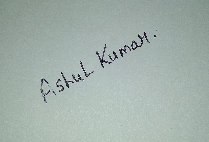 Aishul Kumar.